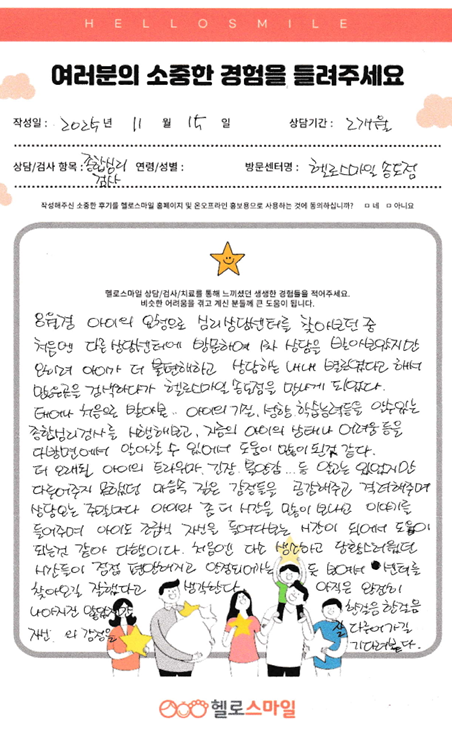 HELLOSMILE
여러분의 소중한 경험을 들려주세요
작성일 : 2025년 11 월 15 일 상담기간 : 2개월
상담/검사 항목 : 종합심리 검사 연령/성별 : 방문센터명 : 헬로스마일 송도점
작성해주신 소중한 후기를 헬로스마일 홈페이지 및 온오프라인 홍보용으로 사용하는 것에 동의하십니까? ㅁ 네 ㅁ 아니요
헬로스마일 상담/검사/치료를 통해 느끼셨던 생생한 경험들을 적어주세요.
비슷한 어려움을 겪고 계신 분들께 큰 도움이 됩니다.
8월경 아이의 요청으로 심리상담센터를 찾아보던 중
처음엔 다른 상담센터에 방문하여 1차 상담을 받아보았지만
오히려 아이가 더 불편해하고 상담하는 내내 별로였다고 해서
많은곳을 검색하다가 헬로스마일 송도점을 만나게 되었다.
태어나 처음으로 받아본.. 아이의 기질, 성향, 학습능력등을 알수있는
종합심리검사를 시행해보고, 지금의 아이의 상태나 어려움 등을
다방면에서 알아갈 수 있어서 도움이 많이 된것 같다.
더 오래된 아이의 트라우마, 긴장, 불안감... 등 알고는 있었지만
다루어주지 못했던 마음속 깊은 감정들을 공감해주고 격려해주며
상담오는 주말마다 아이와 좀 더 시간을 많이 보내고 이야기를
들어주며 아이도 조금씩 자신을 들여다보는 시간이 되어서 도움이
되는것 같아 다행이다. 처음엔 다소 생소하고 당황스러웠던
시간들이 점점 편안해지고 안정되어가는 듯 보여서 센터를
찾아오길 잘했다고 생각한다 아직은 완전히
나아지진 않았지만 한걸음 한걸음
자신의 감정을 잘 다루어가길
기다려본다.
헬로스마일